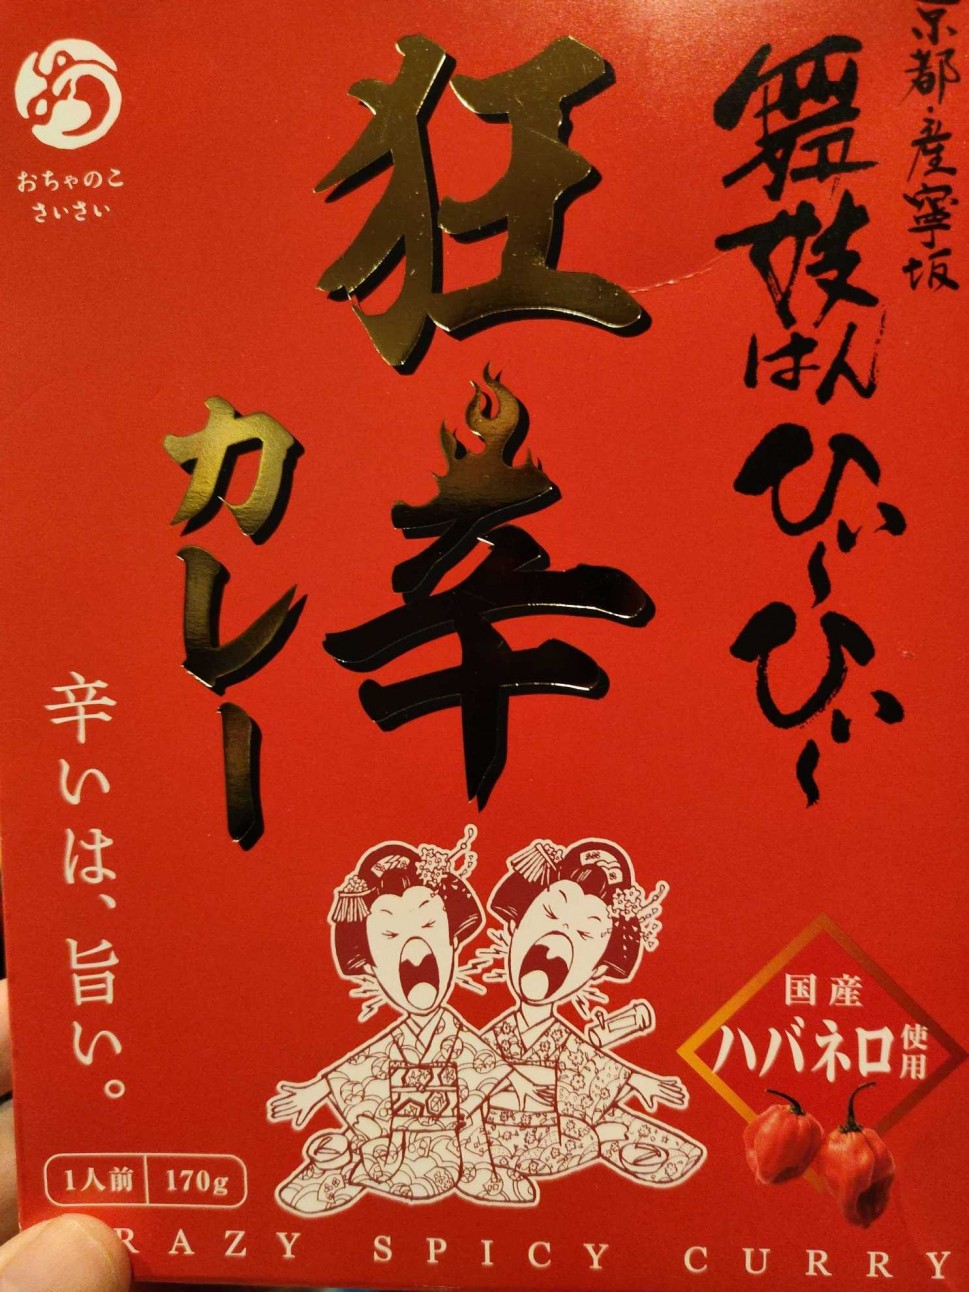 京都・産寧坂
舞妓はんひぃ〜ひぃ〜
狂辛
カレー
おちゃのこ
さいさい
辛いは、旨い。
国産
ハバネロ使用
1人前 170g
RAZY SPICY CURRY